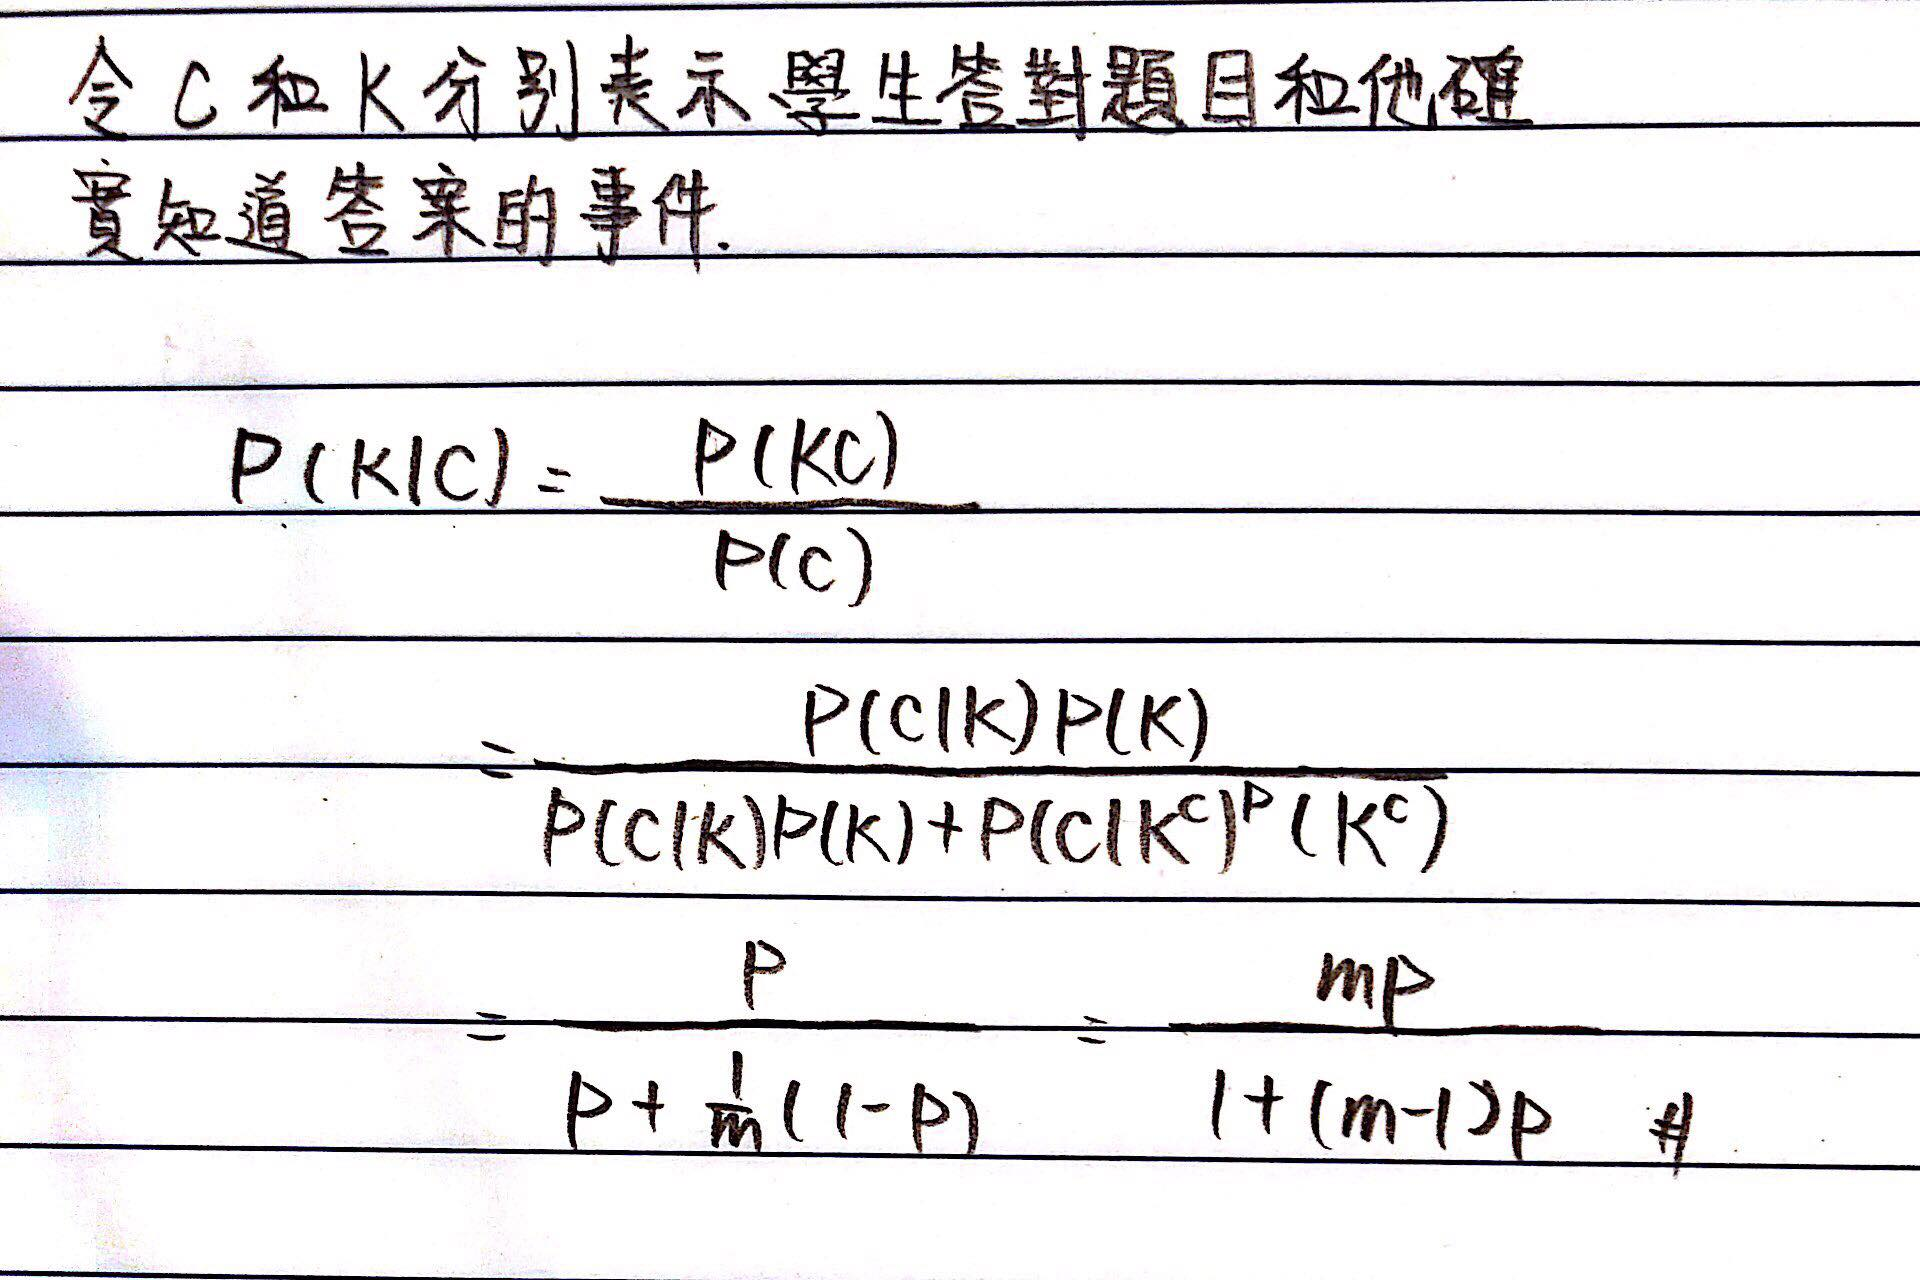 令 C 和 K 分別表示學生答對題目和他確
實知道答案的事件.
P(K|C) = P(KC) / P(C)
= P(C|K)P(K) / P(C|K)P(K)+P(C|K^c)P(K^c)
= p / p + 1/m (1-p) = mp / 1+(m-1)p #